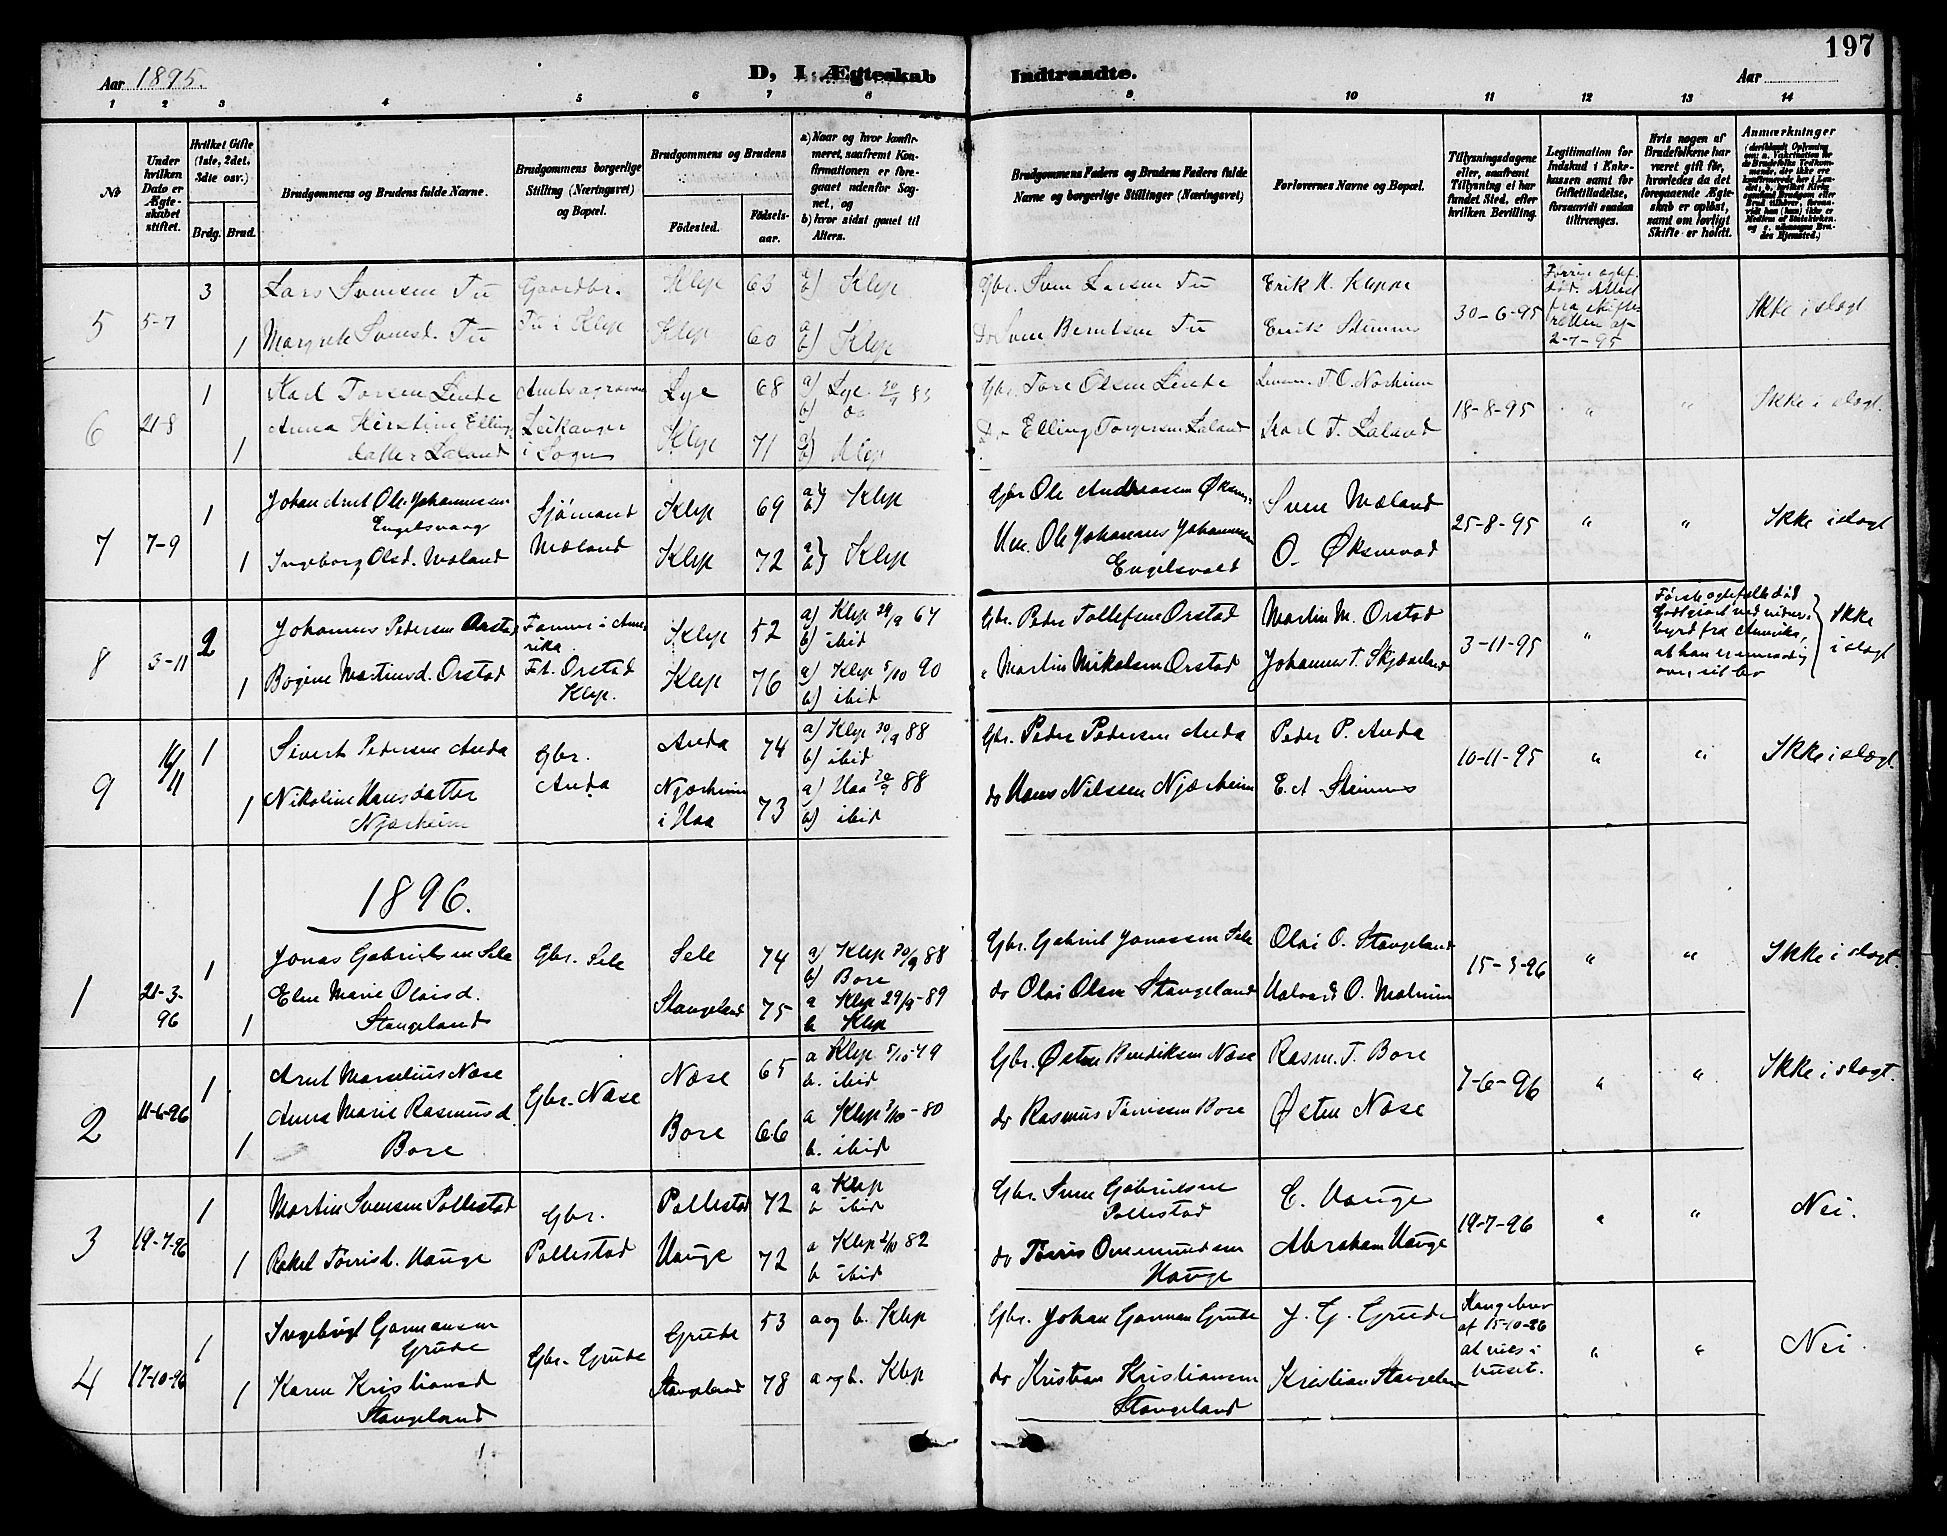 197
Aar 1895.
D, I Ægteskab Indtraadte.
Aar
1 2 3 4 5 6 7 8 9 10 11 12 13 14
No
Under hvilken Dato er Ægteskabet stiftet.
Hvilket Gifte (1ste, 2det, 3die osv.)
Brdg. Brud.
Brudgommens og Brudens fulde Navne.
Brudgommens borgerlige Stilling (Næringsvei) og Bopæl.
Brudgommens og Brudens
Fødested.
Fødselsaar.
a) Naar og hvor konfirmeret, saafremt Konfirmationen er foregaaet udenfor Sognet, og
b) hvor sidst gaaet til Alters.
Brudgommens Faders og Brudens Faders fulde Navne og borgerlige Stillinger (Næringsvei)
Forlovernes Navne og Bopæl.
Tillysningsdagene eller, saafremt Tillysning ei har fundet Sted, efter hvilken Bevilling.
Legitimation for Indskud i Enkekassen samt for Giftetilladelse, forsaavidt saadan tiltrænges.
Hvis nogen af Brudefolkene har været gift før, hvorledes da det foregaaende Ægteskab er opløst, samt om lovligt Skifte er holdt.
Anmærkninger
5 5-7 3 Lars Svensen Tu Gaardbr. Klep 63 a) b) Klep Gbr. Sven Larsen Tu Erik M. Kleppe 30-6-95 Ikke i slægt
1 Margrete Svensd. Tu Tu i Klep Klep 60 a) b) Klep Do Sven Berntsen Tu Erik Stimnes
fra skifteretten af 2-7-95
6 21-8 1 Karl Torsen Linde Lye 68 a) Lye 83 b) do Gbr. Tore Olsen Linde T. O. Norheim 18-8-95 " " Ikke i slægt.
1 Anna Kirstine Ellingdatter Laland Leikanger i Sogn Klep 71 a) b) Klep Do Elling Torgersen Laland Karl T. Laland
7 7-9 1 Johan Arnt Ole Johannesen Engelsvaag Sjømand Klep 69 a) b) Klep Gbr Ole Andreasen Sven Mæland 25-8-95 " " Ikke i slægt
1 Ingeborg Olsd. Mæland Mæland Klep 72 a) b) Klep Ole Johannes Johannesen O. Øksnevad
8 3-11 2 Johannes Pedersen Orstad Farmer i Amerika Klep 52 a) Klep 29/9 67 b) ibid Gbr. Peder Tollefsen Orstad Martin M. Orstad 3-11-95 " Første ægtefælle død Godtgjort ved vidnesbyrd fra Amerika, Ikke i slægt
1 Bogine Martinsd. Orstad Ft. Orstad Klep. Klep 76 a) Klep 5/10 90 b) ibid " Martin Mikalsen Orstad Johannes T. Skjæveland
9 16/11 1 Sivert Pedersen Anda Gbr. Anda Anda 74 a) Klep 30/9 88 b) ibid Gbr. Peder Pedersen Anda Peder P. Anda 10-11-95 " " Ikke i slægt.
1 Nikoline Hansdatter Njærheim Njærheim i Haa 73 a) Haa 88 b) ibid do Hans Nilssen Njærheim E. A Stimnes
1896.
1 21-3-96 1 Jonas Gabrielsen Sele Gbr. Sele Sele 74 a) Klep 30/9 88 b) Bore Gbr. Gabriel Jonassen Sele Olai O. Stangeland 15-3-96 " " Ikke i slægt.
1 Elen Marie Olaisd. Stangeland Stangeland 75 a Klep 29/9-89 b Klep do Olai Olsen Stangeland
2 11-6-96 1 Arnt Marselius Næse Gbr. Næse Næse 65 a Klep 5/10-79 b. ibid Gbr. Østen Bendiksen Næse Rasm. T. Bore 7-6-96 " " Ikke i slægt.
1 Anna Marie Rasmusd. Bore Bore 66 a Klep 3/10-80 b. ibid do Rasmus Tørrissen Bore Østen Næse
3 19-7-96 1 Martin Svensen Pollestad Gbr. Pollestad Pollestad 72 a Klep b ibid Gbr. Sven Gabrielsen Pollestad E. Hauge 19-7-96 " " Nei.
1 Rakel Tørrisd. Hauge Hauge 72 a Klep 82 b ibid do Tørris Ommundsen Hauge Abraham Hauge
4 17-10-96 1 Ingebrigt Gormansen Grude Gbr. Grude Grude 53 a og b. Klep Gbr. Johan Gorman Grude J. G. Grude Kongebrev af 15-10-96 at vies i huset. " " Nei.
1 Karen Kristiansd Stangeland Stangeland 78 a og b. Klep do Kristian Kristiansen Stangeland Kristian Stangeland